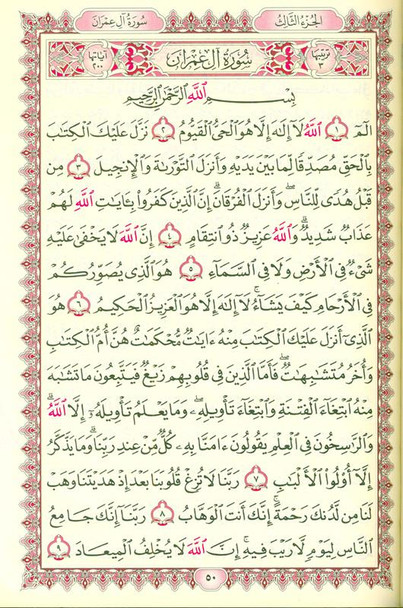 سُورَةُ آلِ عِمْرَان
الجُزْءُ الثَّالِثُ
ترتيبها ٣
سُورَةُ آلِ عِمْرَان
آياتها ٢٠٠
بِسْمِ اللَّهِ الرَّحْمَٰنِ الرَّحِيمِ
الٓمٓ ١ اللَّهُ لَآ إِلَٰهَ إِلَّا هُوَ الْحَيُّ الْقَيُّومُ ٢ نَزَّلَ عَلَيْكَ الْكِتَٰبَ
بِالْحَقِّ مُصَدِّقًا لِّمَا بَيْنَ يَدَيْهِ وَأَنزَلَ التَّوْرَىٰةَ وَالْإِنجِيلَ ٣ مِن
قَبْلُ هُدًى لِّلنَّاسِ وَأَنزَلَ الْفُرْقَانَ ۗ إِنَّ الَّذِينَ كَفَرُوا بِـَٔايَٰتِ اللَّهِ لَهُمْ
عَذَابٌ شَدِيدٌ ۗ وَاللَّهُ عَزِيزٌ ذُو انتِقَامٍ ٤ إِنَّ اللَّهَ لَا يَخْفَىٰ عَلَيْهِ
شَىْءٌ فِى الْأَرْضِ وَلَا فِى السَّمَآءِ ٥ هُوَ الَّذِى يُصَوِّرُكُمْ
فِى الْأَرْحَامِ كَيْفَ يَشَآءُ ۚ لَآ إِلَٰهَ إِلَّا هُوَ الْعَزِيزُ الْحَكِيمُ ٦ هُوَ
الَّذِىٓ أَنزَلَ عَلَيْكَ الْكِتَٰبَ مِنْهُ ءَايَٰتٌ مُّحْكَمَٰتٌ هُنَّ أُمُّ الْكِتَٰبِ
وَأُخَرُ مُتَشَٰبِهَٰتٌ ۖ فَأَمَّا الَّذِينَ فِى قُلُوبِهِمْ زَيْغٌ فَيَتَّبِعُونَ مَا تَشَٰبَهَ
مِنْهُ ابْتِغَآءَ الْفِتْنَةِ وَابْتِغَآءَ تَأْوِيلِهِۦ ۗ وَمَا يَعْلَمُ تَأْوِيلَهُۥٓ إِلَّا اللَّهُ ۗ
وَالرَّٰسِخُونَ فِى الْعِلْمِ يَقُولُونَ ءَامَنَّا بِهِۦ كُلٌّ مِّنْ عِندِ رَبِّنَا ۗ وَمَا يَذَّكَّرُ
إِلَّآ أُولُوا الْأَلْبَٰبِ ٧ رَبَّنَا لَا تُزِغْ قُلُوبَنَا بَعْدَ إِذْ هَدَيْتَنَا وَهَبْ
لَنَا مِن لَّدُنكَ رَحْمَةً ۚ إِنَّكَ أَنتَ الْوَهَّابُ ٨ رَبَّنَآ إِنَّكَ جَامِعُ
النَّاسِ لِيَوْمٍ لَّا رَيْبَ فِيهِ ۚ إِنَّ اللَّهَ لَا يُخْلِفُ الْمِيعَادَ ٩
٥٠